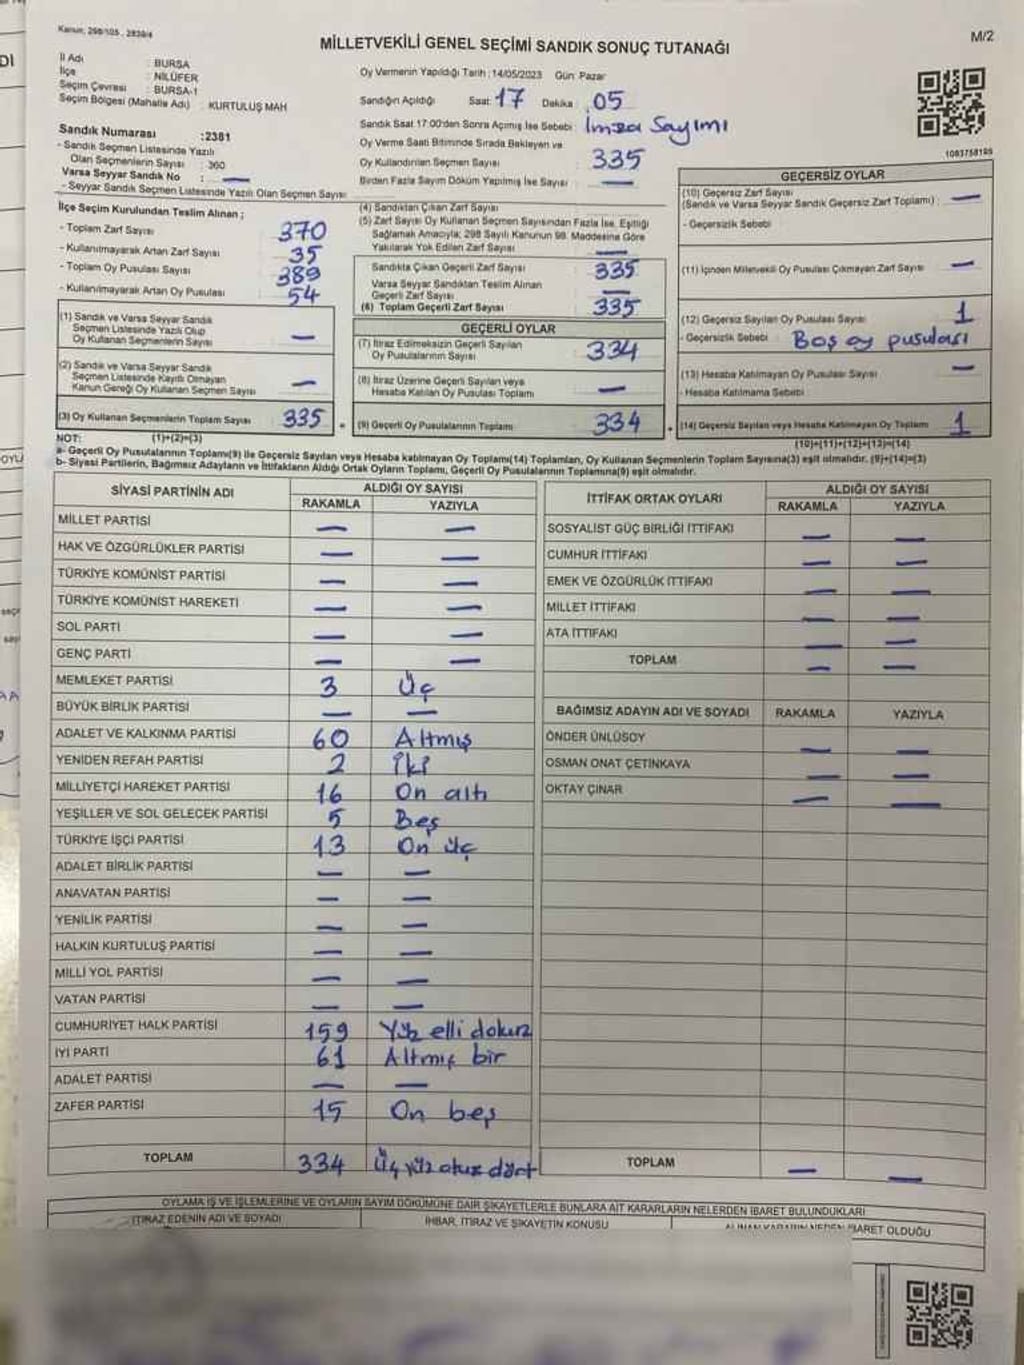 Kanun, 298/105, 2839/4
MİLLETVEKİLİ GENEL SEÇİMİ SANDIK SONUÇ TUTANAĞI
M/2
İl Adı : BURSA
İlçe : NİLÜFER
Seçim Çevresi : BURSA-1
Seçim Bölgesi (Mahalle Adı) : KURTULUŞ MAH
Sandık Numarası :2381
- Sandık Seçmen Listesinde Yazılı
Olan Seçmenlerin Sayısı : 360
Varsa Seyyar Sandık No : —
- Seyyar Sandık Seçmen Listesinde Yazılı Olan Seçmen Sayısı
İlçe Seçim Kurulundan Teslim Alınan ;
- Toplam Zarf Sayısı 370
- Kullanılmayarak Artan Zarf Sayısı 35
- Toplam Oy Pusulası Sayısı 389
- Kullanılmayarak Artan Oy Pusulası 54
(1) Sandık ve Varsa Seyyar Sandık
Seçmen Listesinde Yazılı Olup
Oy Kullanan Seçmenlerin Sayısı —
(2) Sandık ve Varsa Seyyar Sandık
Seçmen Listesinde Kayıtlı Olmayan
Kanun Gereği Oy Kullanan Seçmen Sayısı —
(3) Oy Kullanan Seçmenlerin Toplam Sayısı 335
(1)+(2)=(3)
Oy Vermenin Yapıldığı Tarih :14/05/2023 Gün :Pazar
Sandığın Açıldığı Saat: 17 Dakika : 05
Sandık Saat 17:00'den Sonra Açılmış İse Sebebi : İmza Sayımı
Oy Verme Saati Bitiminde Sırada Bekleyen ve
Oy Kullandırılan Seçmen Sayısı : 335
Birden Fazla Sayım Döküm Yapılmış İse Sayısı : —
(4) Sandıktan Çıkan Zarf Sayısı
(5) Zarf Sayısı Oy Kullanan Seçmen Sayısından Fazla İse, Eşitliği
Sağlamak Amacıyla; 298 Sayılı Kanunun 98. Maddesine Göre
Yakılarak Yok Edilen Zarf Sayısı —
Sandıkta Çıkan Geçerli Zarf Sayısı 335
Varsa Seyyar Sandıktan Teslim Alınan
Geçerli Zarf Sayısı —
(6) Toplam Geçerli Zarf Sayısı 335
GEÇERLİ OYLAR
(7) İtiraz Edilmeksizin Geçerli Sayılan
Oy Pusulalarının Sayısı 334
(8) İtiraz Üzerine Geçerli Sayılan veya
Hesaba Katılan Oy Pusulaları Toplamı —
(9) Geçerli Oy Pusulalarının Toplamı 334
1083758195
GEÇERSİZ OYLAR
(10) Geçersiz Zarf Sayısı
(Sandık ve Varsa Seyyar Sandık Geçersiz Zarf Toplamı) : —
- Geçersizlik Sebebi
(11) İçinden Milletvekili Oy Pusulası Çıkmayan Zarf Sayısı —
(12) Geçersiz Sayılan Oy Pusulası Sayısı 1
- Geçersizlik Sebebi : Boş oy pusulası
(13) Hesaba Katılmayan Oy Pusulası Sayısı —
- Hesaba Katılmama Sebebi
(14) Geçersiz Sayılan veya Hesaba Katılmayan Oy Toplamı 1
(10)+(11)+(12)+(13)=(14)
NOT:
a- Geçerli Oy Pusulalarının Toplamı(9) ile Geçersiz Sayılan veya Hesaba katılmayan Oy Toplamı(14) Toplamları, Oy Kullanan Seçmenlerin Toplam Sayısına(3) eşit olmalıdır. (9)+(14)=(3)
b- Siyasi Partilerin, Bağımsız Adayların ve İttifakların Aldığı Ortak Oyların Toplamı, Geçerli Oy Pusulalarının Toplamına(9) eşit olmalıdır.
SİYASİ PARTİNİN ADI ALDIĞI OY SAYISI
RAKAMLA YAZIYLA
MİLLET PARTİSİ — —
HAK VE ÖZGÜRLÜKLER PARTİSİ — —
TÜRKİYE KOMÜNİST PARTİSİ — —
TÜRKİYE KOMÜNİST HAREKETİ — —
SOL PARTİ — —
GENÇ PARTİ — —
MEMLEKET PARTİSİ 3 Üç
BÜYÜK BİRLİK PARTİSİ — —
ADALET VE KALKINMA PARTİSİ 60 Altmış
YENİDEN REFAH PARTİSİ 2 İki
MİLLİYETÇİ HAREKET PARTİSİ 16 On altı
YEŞİLLER VE SOL GELECEK PARTİSİ 5 Beş
TÜRKİYE İŞÇİ PARTİSİ 13 On üç
ADALET BİRLİK PARTİSİ — —
ANAVATAN PARTİSİ — —
YENİLİK PARTİSİ — —
HALKIN KURTULUŞ PARTİSİ — —
MİLLİ YOL PARTİSİ — —
VATAN PARTİSİ — —
CUMHURİYET HALK PARTİSİ 159 Yüz elli dokuz
İYİ PARTİ 61 Altmış bir
ADALET PARTİSİ — —
ZAFER PARTİSİ 15 On beş
TOPLAM 334 Üç yüz otuz dört
İTTİFAK ORTAK OYLARI ALDIĞI OY SAYISI
RAKAMLA YAZIYLA
SOSYALİST GÜÇ BİRLİĞİ İTTİFAKI — —
CUMHUR İTTİFAKI — —
EMEK VE ÖZGÜRLÜK İTTİFAKI — —
MİLLET İTTİFAKI — —
ATA İTTİFAKI — —
TOPLAM — —
BAĞIMSIZ ADAYIN ADI VE SOYADI RAKAMLA YAZIYLA
ÖNDER ÜNLÜSOY — —
OSMAN ONAT ÇETİNKAYA — —
OKTAY ÇINAR — —
TOPLAM — —
OYLAMA İŞ VE İŞLEMLERİNE VE OYLARIN SAYIM DÖKÜMÜNE DAİR ŞİKAYETLERLE BUNLARA AİT KARARLARIN NELERDEN İBARET BULUNDUKLARI
İTİRAZ EDENİN ADI VE SOYADI İHBAR, İTİRAZ VE ŞİKAYETİN KONUSU ALINAN KARARIN NEDEN İBARET OLDUĞU